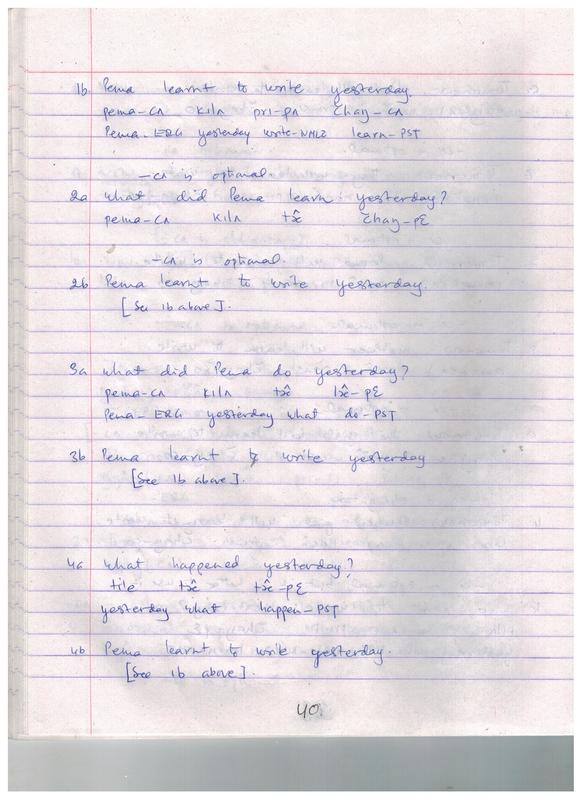 1b. Pema learnt to write yesterday.
pema-cʌ kilʌ pri-pʌ čhaŋ-cʌ
Pema-ERG yesterday write-NMLZ learn-PST
-cʌ is optional.
2a What did Pema learn yesterday?
pema-cʌ kilʌ čhaŋ-pɛ
-cʌ is optional.
2b Pema learnt to write yesterday.
[See 1b above].
3a What did Pema do yesterday?
pema-cʌ kilʌ
Pema-ERG yesterday what do-PST
3b Pema learnt to write yesterday
[See 1b above].
4a What happened yesterday?
tile
yesterday what happen-PST
4b Pema learnt to write yesterday.
[See 1b above].
40